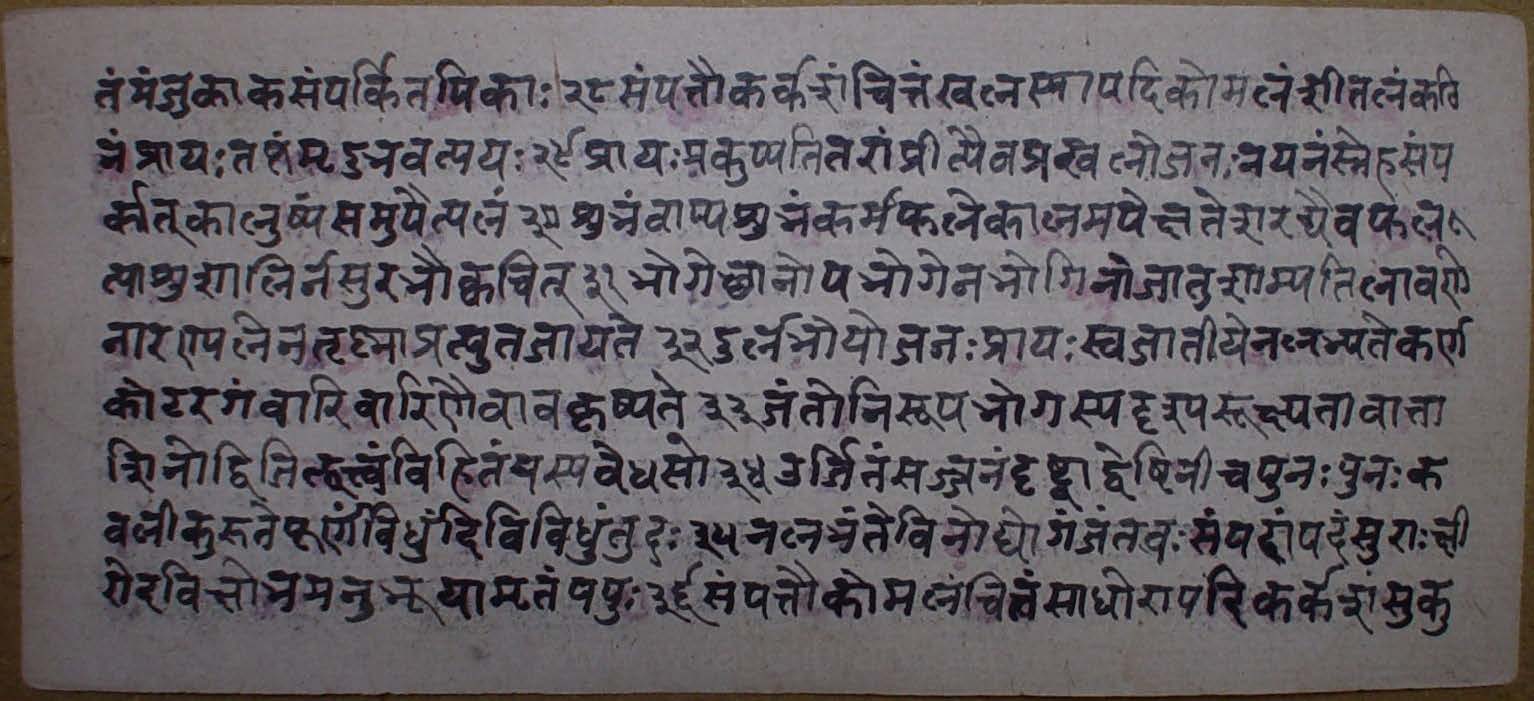 तं मंजुकाकसंपर्कितपिकाः २८ संपत्तौ कर्कशं चित्तं खलस्यापदि कोमलं शीतलं कठि
नं प्रायः तप्तं मृदुभवत्ययः २९ प्रायः प्रकुप्यतितरां प्रीत्यैव प्रखलो जनः नयनं स्नेहसंप
र्कात् कालुष्यं समुपैत्यलं ३० शुभं वाप्यशुभं कर्म फलेकालमपेक्षते शरद्यैव फल
त्याशु शालिर्न सुरभौ क्वचित् ३१ भोगेछा नोपभोगेन भोगिनो जातु शाम्यति लावणे
नारणपलेन तृष्णा प्रत्युत जायते ३२ दुर्लभो यो जनः प्रायः स्वजातीयेन लभ्यते कर्ण
कोटरगं वारि वारिणैवावकृष्यते ३३ जंतो निरूपभोगस्य दृश्यपरूक्ष्यता वाता
शिनो द्विजिह्वत्वं विहितं यस्य वेधसो ३४ उर्जितं सज्जनं दृष्ट्वा द्वेषिनीच पुनः पुनः क
वलीकुरुते पूर्णं विधुं दिवि विधुंतुदः ३५ न लभंते विनोद्योगं जंतवः संपदां पदं सुराः क्षी
रोदविक्षोभमनुभूयामृतं पपुः ३६ संपत्तौ कोमलं चित्तं साधोरापदि कर्कशं सुकु